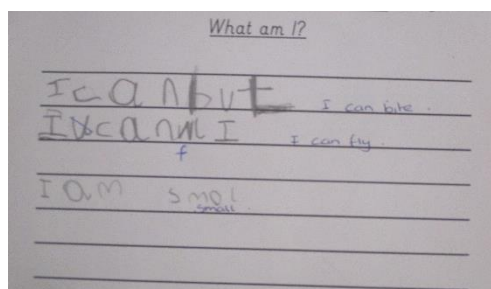 What am I?
I c a n b u t I can bite.
I c a n I I can fly.
f
I am smol
small